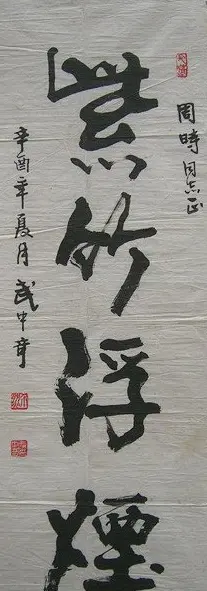 周時同志正
紫竹浮煙
辛酉年夏月武中奇